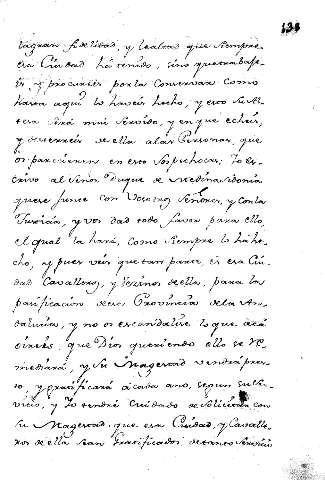 134
la gran fidelidad, y lealtad que siempre
esa Ciudad há tenido, sino que trabaje
is, y procureis por la Conservar como
hasta aqui lo haveis hecho, y esto Su Al
tera será mui Servido, y en que echeis,
y desterreis de ella alas Personas, que
os parecieren en esto Sospechosas; Io es
crivo al Señor Duque de Medina Sidonia
que se junte con Vosotros Señores, y con la
Justicia, y vos dad todo favor para ello,
el qual lo hará, como Siempre lo há he
cho, y pues veis que tan parte, es esa Ciu
dad Cavalleros, y Vezinos de ella, para la
pacificacion de esa Provincia de la An
dalucia, y no os escandalize lo que acá
oireis, que Dios queriendo ello se re
mediará, y Su Magestad vendrá pres
to, y gratificará á cada uno, segun su Ser
vicio, y Io tendré Cuidado de Solicitar con
Su Magestad, que esa Ciudad, y Cavalle
ros de ella sean Gratificados de tanto Servicio